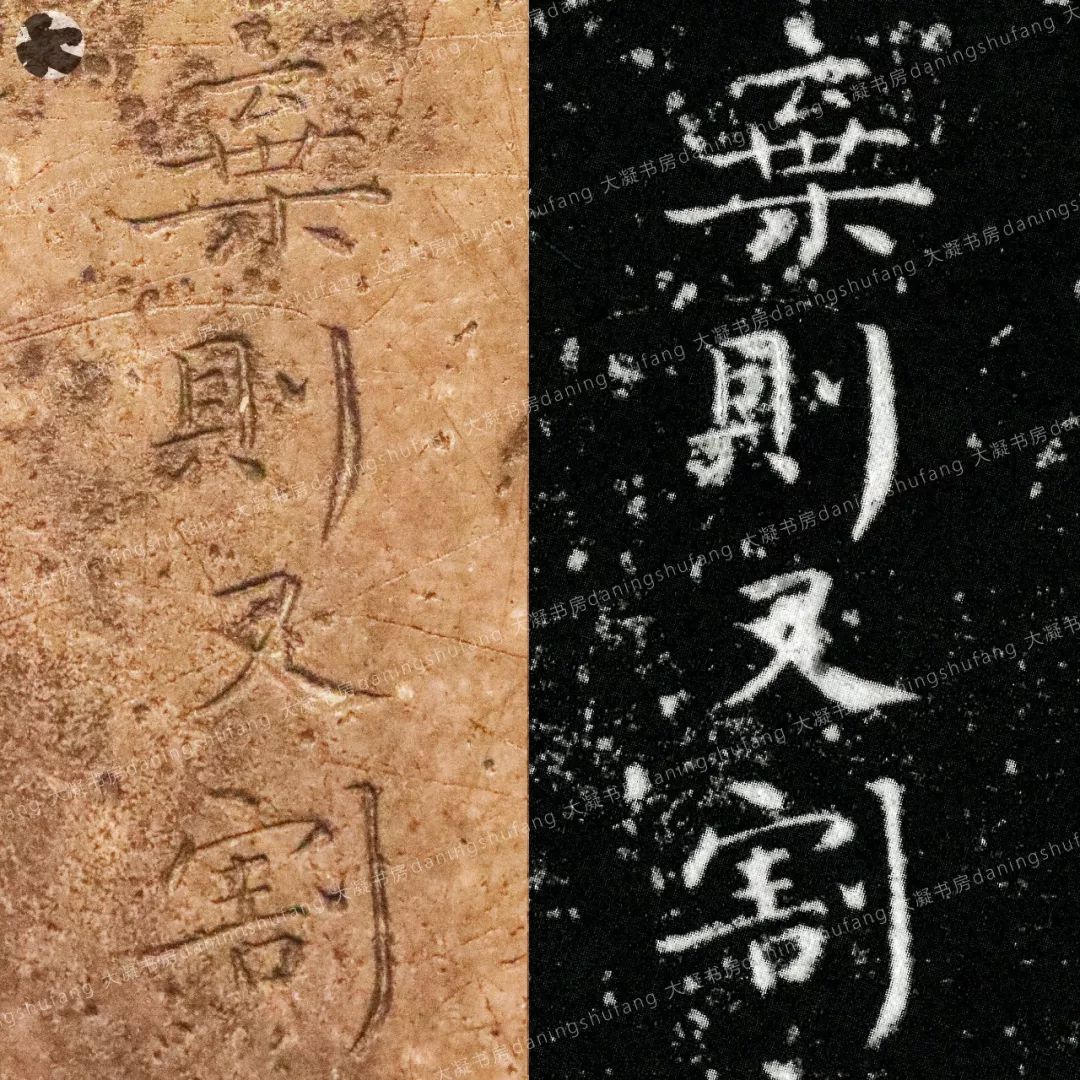 棄則又割
棄則又割
大凝书房daningshufang